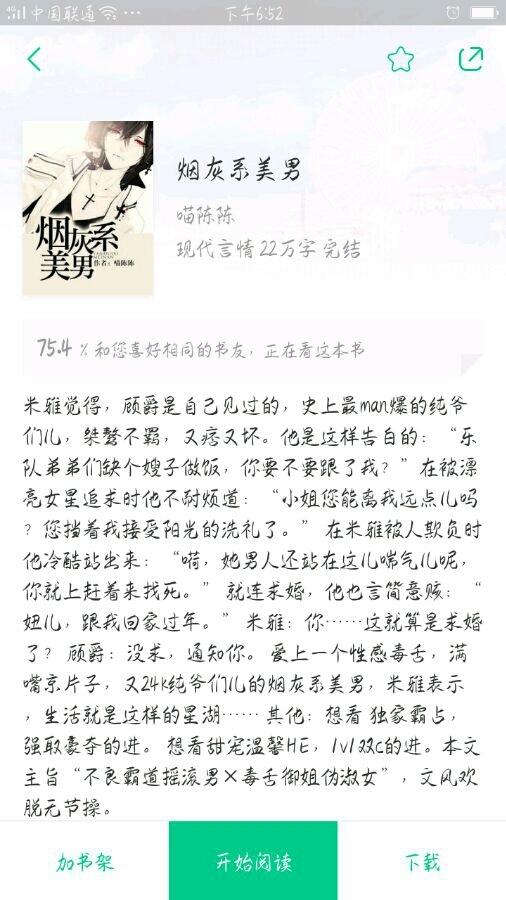 4G 中国联通 下午6:52
烟灰系美男
喵陈陈
现代言情 22万字 完结
烟灰系
美男
作者：喵陈陈
75.4 % 和您喜好相同的书友，正在看这本书
米雅觉得，顾爵是自己见过的，史上最man爆的纯爷
们儿，桀骜不羁，又痞又坏。他是这样告白的：“乐
队弟弟们缺个嫂子做饭，你要不要跟了我？”在被漂
亮女星追求时他不耐烦道：“小姐您能离我远点儿吗
？您挡着我接受阳光的洗礼了。” 在米雅被人欺负时
他冷酷站出来：“嗬，她男人还站在这儿喘气儿呢，
你就上赶着来找死。” 就连求婚，他也言简意赅：“
妞儿，跟我回家过年。” 米雅：你……这就算是求婚
了？ 顾爵：没求，通知你。 爱上一个性感毒舌，满
嘴京片子，又24k纯爷们儿的烟灰系美男，米雅表示
，生活就是这样的星湖…… 其他：想看 独家霸占，
强取豪夺的进。 想看甜宠温馨HE，1v1双c的进。本文
主旨“不良霸道摇滚男×毒舌御姐伪淑女”，文风欢
脱无节操。
加书架 开始阅读 下载